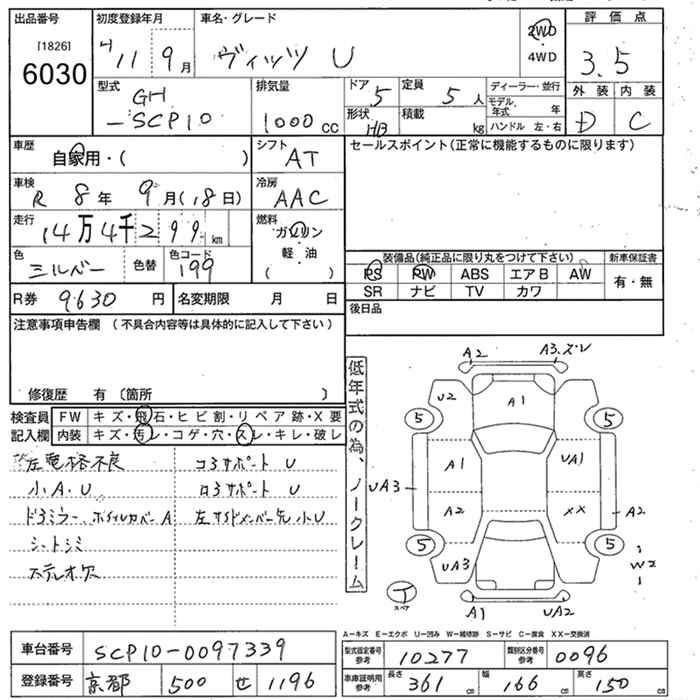 出品番号 初度登録年月 車名・グレード 2WD 4WD 評価点
[1826]
6030 H11 9月 ヴィッツ U 3.5
型式 GH-SCP10 排気量 1000cc ドア 5 定員 5人 ディーラー・並行 外装 内装
形状 HB 積載 kg モデル年式 年 D C
ハンドル 左・右
車歴 自家用・( ) シフト AT セールスポイント(正常に機能するものに限ります)
車検 R 8年 9月(18日) 冷房 AAC
走行 14万4千299km 燃料 ガソリン 軽油 ( )
色 ミルバー 色替 色コード 199 装備品(純正品に限り丸をつけて下さい) 新車保証書
PS PW ABS エアB AW 有・無
SR ナビ TV カワ
R券 9630円 名変期限 月 日 後日品
注意事項申告欄 (不具合内容等は具体的に記入して下さい)
修復歴 有 〔箇所 〕
検査員 FW キズ・飛石・ヒビ割・リペア跡・X要
記入欄 内装 キズ・汚レ・コゲ・穴・スレ・キレ・破レ
左電格不良 コアサポート U
小A・U ロアサポート U
ドアミラー、ホイルカバーA 左サイドメンバー先小U
シートシミ
ステレオ欠
低年式の為、ノークレーム
A2 A3.ズ.U
U2 A1
5 5
A1 UA1
UA3 A2 XX A2
5 5
UA3 W2
T スペア A1 UA2
A−キズ E−エクボ U−凹み W−補修跡 S−サビ C−腐食 XX−交換済
車台番号 SCP10-0097339 型式指定番号参考 10277 類別区分番号参考 0096
登録番号 京都 500 せ 1196 車庫証明用参考 長さ 361cm 幅 166cm 高さ 150cm